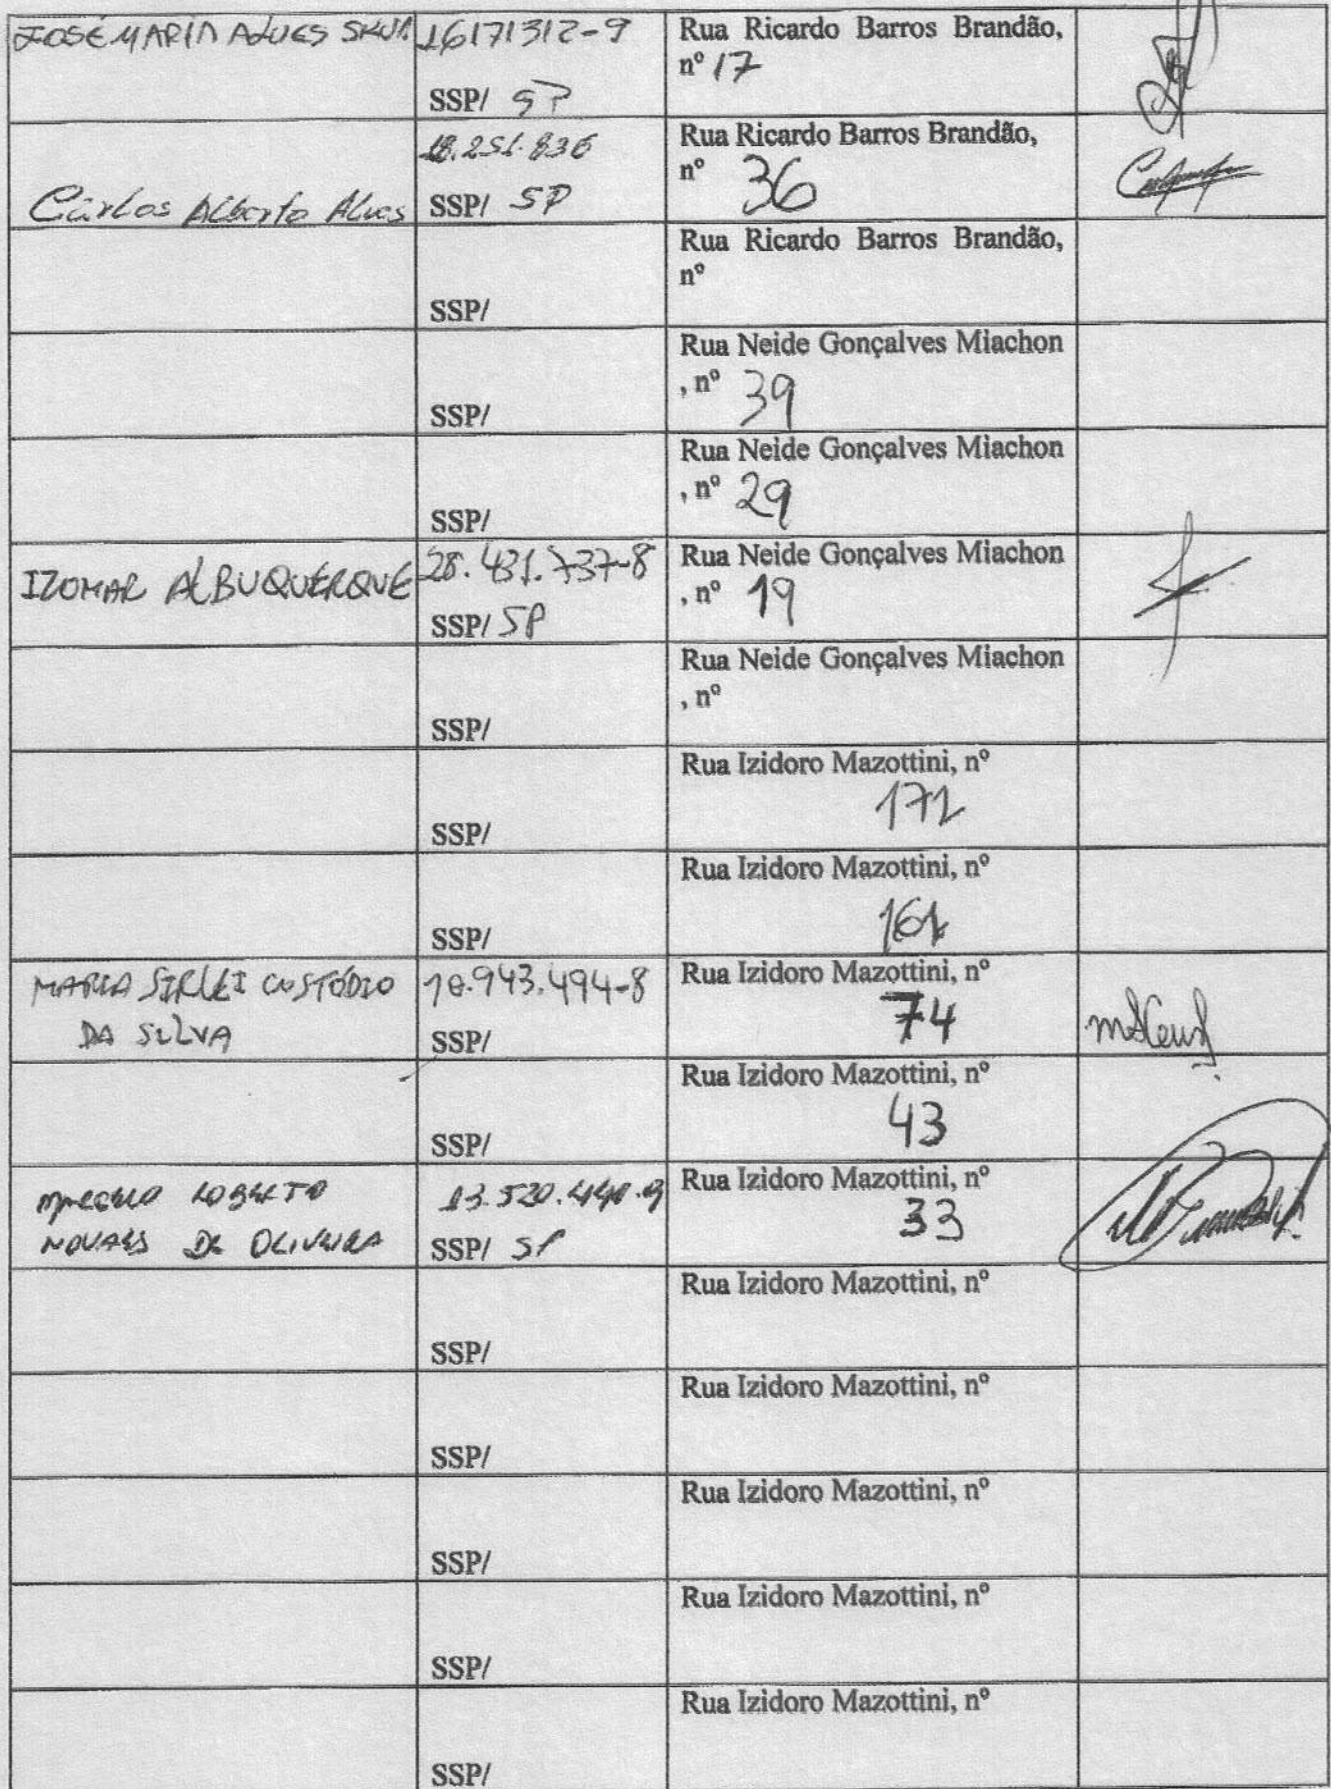 JOSÉ MARIA ALVES SILVA
16171312-9
SSP/ SP
Rua Ricardo Barros Brandão,
nº 17
Carlos Alberto Alves
18.251.836
SSP/ SP
Rua Ricardo Barros Brandão,
nº 36
SSP/
Rua Ricardo Barros Brandão,
nº
SSP/
Rua Neide Gonçalves Miachon
, nº 39
SSP/
Rua Neide Gonçalves Miachon
, nº 29
IZOMAR ALBUQUERQUE
28.431.737-8
SSP/ SP
Rua Neide Gonçalves Miachon
, nº 19
SSP/
Rua Neide Gonçalves Miachon
, nº
SSP/
Rua Izidoro Mazottini, nº
172
SSP/
Rua Izidoro Mazottini, nº
161
MARIA SIRLEI CUSTÓDIO
DA SILVA
18.943.494-8
SSP/
Rua Izidoro Mazottini, nº
74
SSP/
Rua Izidoro Mazottini, nº
43
MARCELO ROBERTO
NOVAES DE OLIVEIRA
13.520.440-9
SSP/ SP
Rua Izidoro Mazottini, nº
33
SSP/
Rua Izidoro Mazottini, nº
SSP/
Rua Izidoro Mazottini, nº
SSP/
Rua Izidoro Mazottini, nº
SSP/
Rua Izidoro Mazottini, nº
SSP/
Rua Izidoro Mazottini, nº